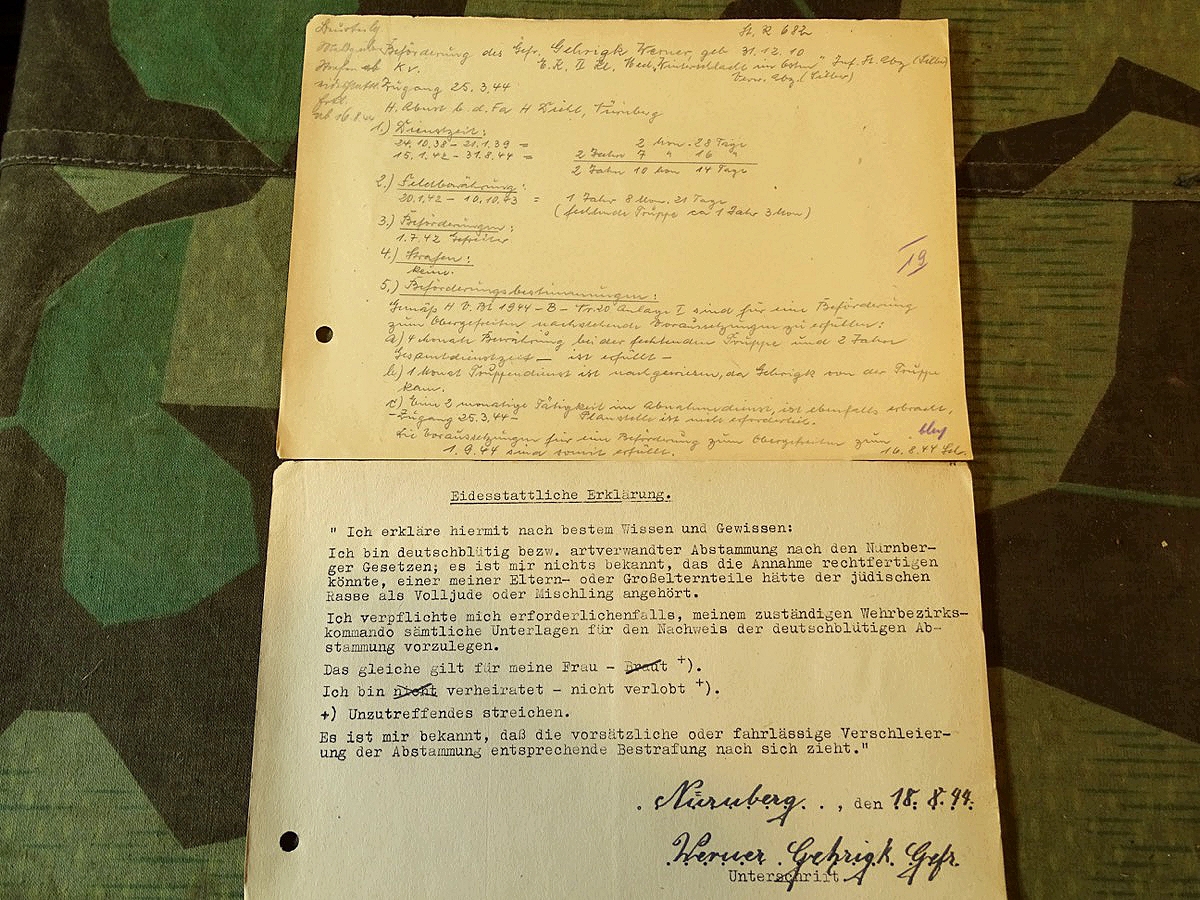 St. R 682
Beförderung des Gefr. Gehrigk Werner, geb 31.12.10
Kv. E.K. II Kl. Med. "Winterschlacht im Osten" Inf. St. Abz. (Silber)
Verw. Abz. (Silber)
Zugang 25.3.44
ab 16.8.44
H. Abnst b. d. Fa H Diehl, Nürnberg
1.) Dienstzeit:
24.10.38 - 21.1.39 = 2 Mon. 28 Tage
15.1.42 - 31.8.44 = 2 Jahre 7 " 16 "
2 Jahre 10 Mon 14 Tage
2.) Feldbewährung:
20.1.42 - 10.10.43 = 1 Jahr 8 Mon. 21 Tage
(fechtende Truppe ca 1 Jahr 3 Mon)
3.) Beförderungen:
1.7.42 Gefreiter
4.) Strafen:
keine.
19
5.) Beförderungsbestimmungen:
Gemäß H V. Bl 1944 - B - Nr. 20 Anlage I sind für eine Beförderung
zum Obergefreiten nachstehende Voraussetzungen zu erfüllen:
a) 4 Monate Bewährung bei der fechtenden Truppe und 2 Jahre
Gesamtdienstzeit - ist erfüllt -
b) 1 Monat Truppendienst ist nachgewiesen, da Gehrigk von der Truppe
kam.
c) Eine 2 monatige Tätigkeit im Abnahmedienst, ist ebenfalls erbracht,
- Zugang 25.3.44 - Planstelle ist nicht erforderlich.
Die Voraussetzungen für eine Beförderung zum Obergefreiten zum
1.9.44 sind somit erfüllt. 16.8.44
Eidesstattliche Erklärung.
" Ich erkläre hiermit nach bestem Wissen und Gewissen:
Ich bin deutschblütig bezw. artverwandter Abstammung nach den Nürnber-
ger Gesetzen; es ist mir nichts bekannt, das die Annahme rechtfertigen
könnte, einer meiner Eltern- oder Großelternteile hätte der jüdischen
Rasse als Volljude oder Mischling angehört.
Ich verpflichte mich erforderlichenfalls, meinem zuständigen Wehrbezirks-
kommando sämtliche Unterlagen für den Nachweis der deutschblütigen Ab-
stammung vorzulegen.
Das gleiche gilt für meine Frau - Braut +).
Ich bin nicht verheiratet - nicht verlobt +).
+) Unzutreffendes streichen.
Es ist mir bekannt, daß die vorsätzliche oder fahrlässige Verschleier-
ung der Abstammung entsprechende Bestrafung nach sich zieht."
. Nürnberg. . , den 18. 8. 44.
Werner Gehrigk Gefr.
Unterschrift